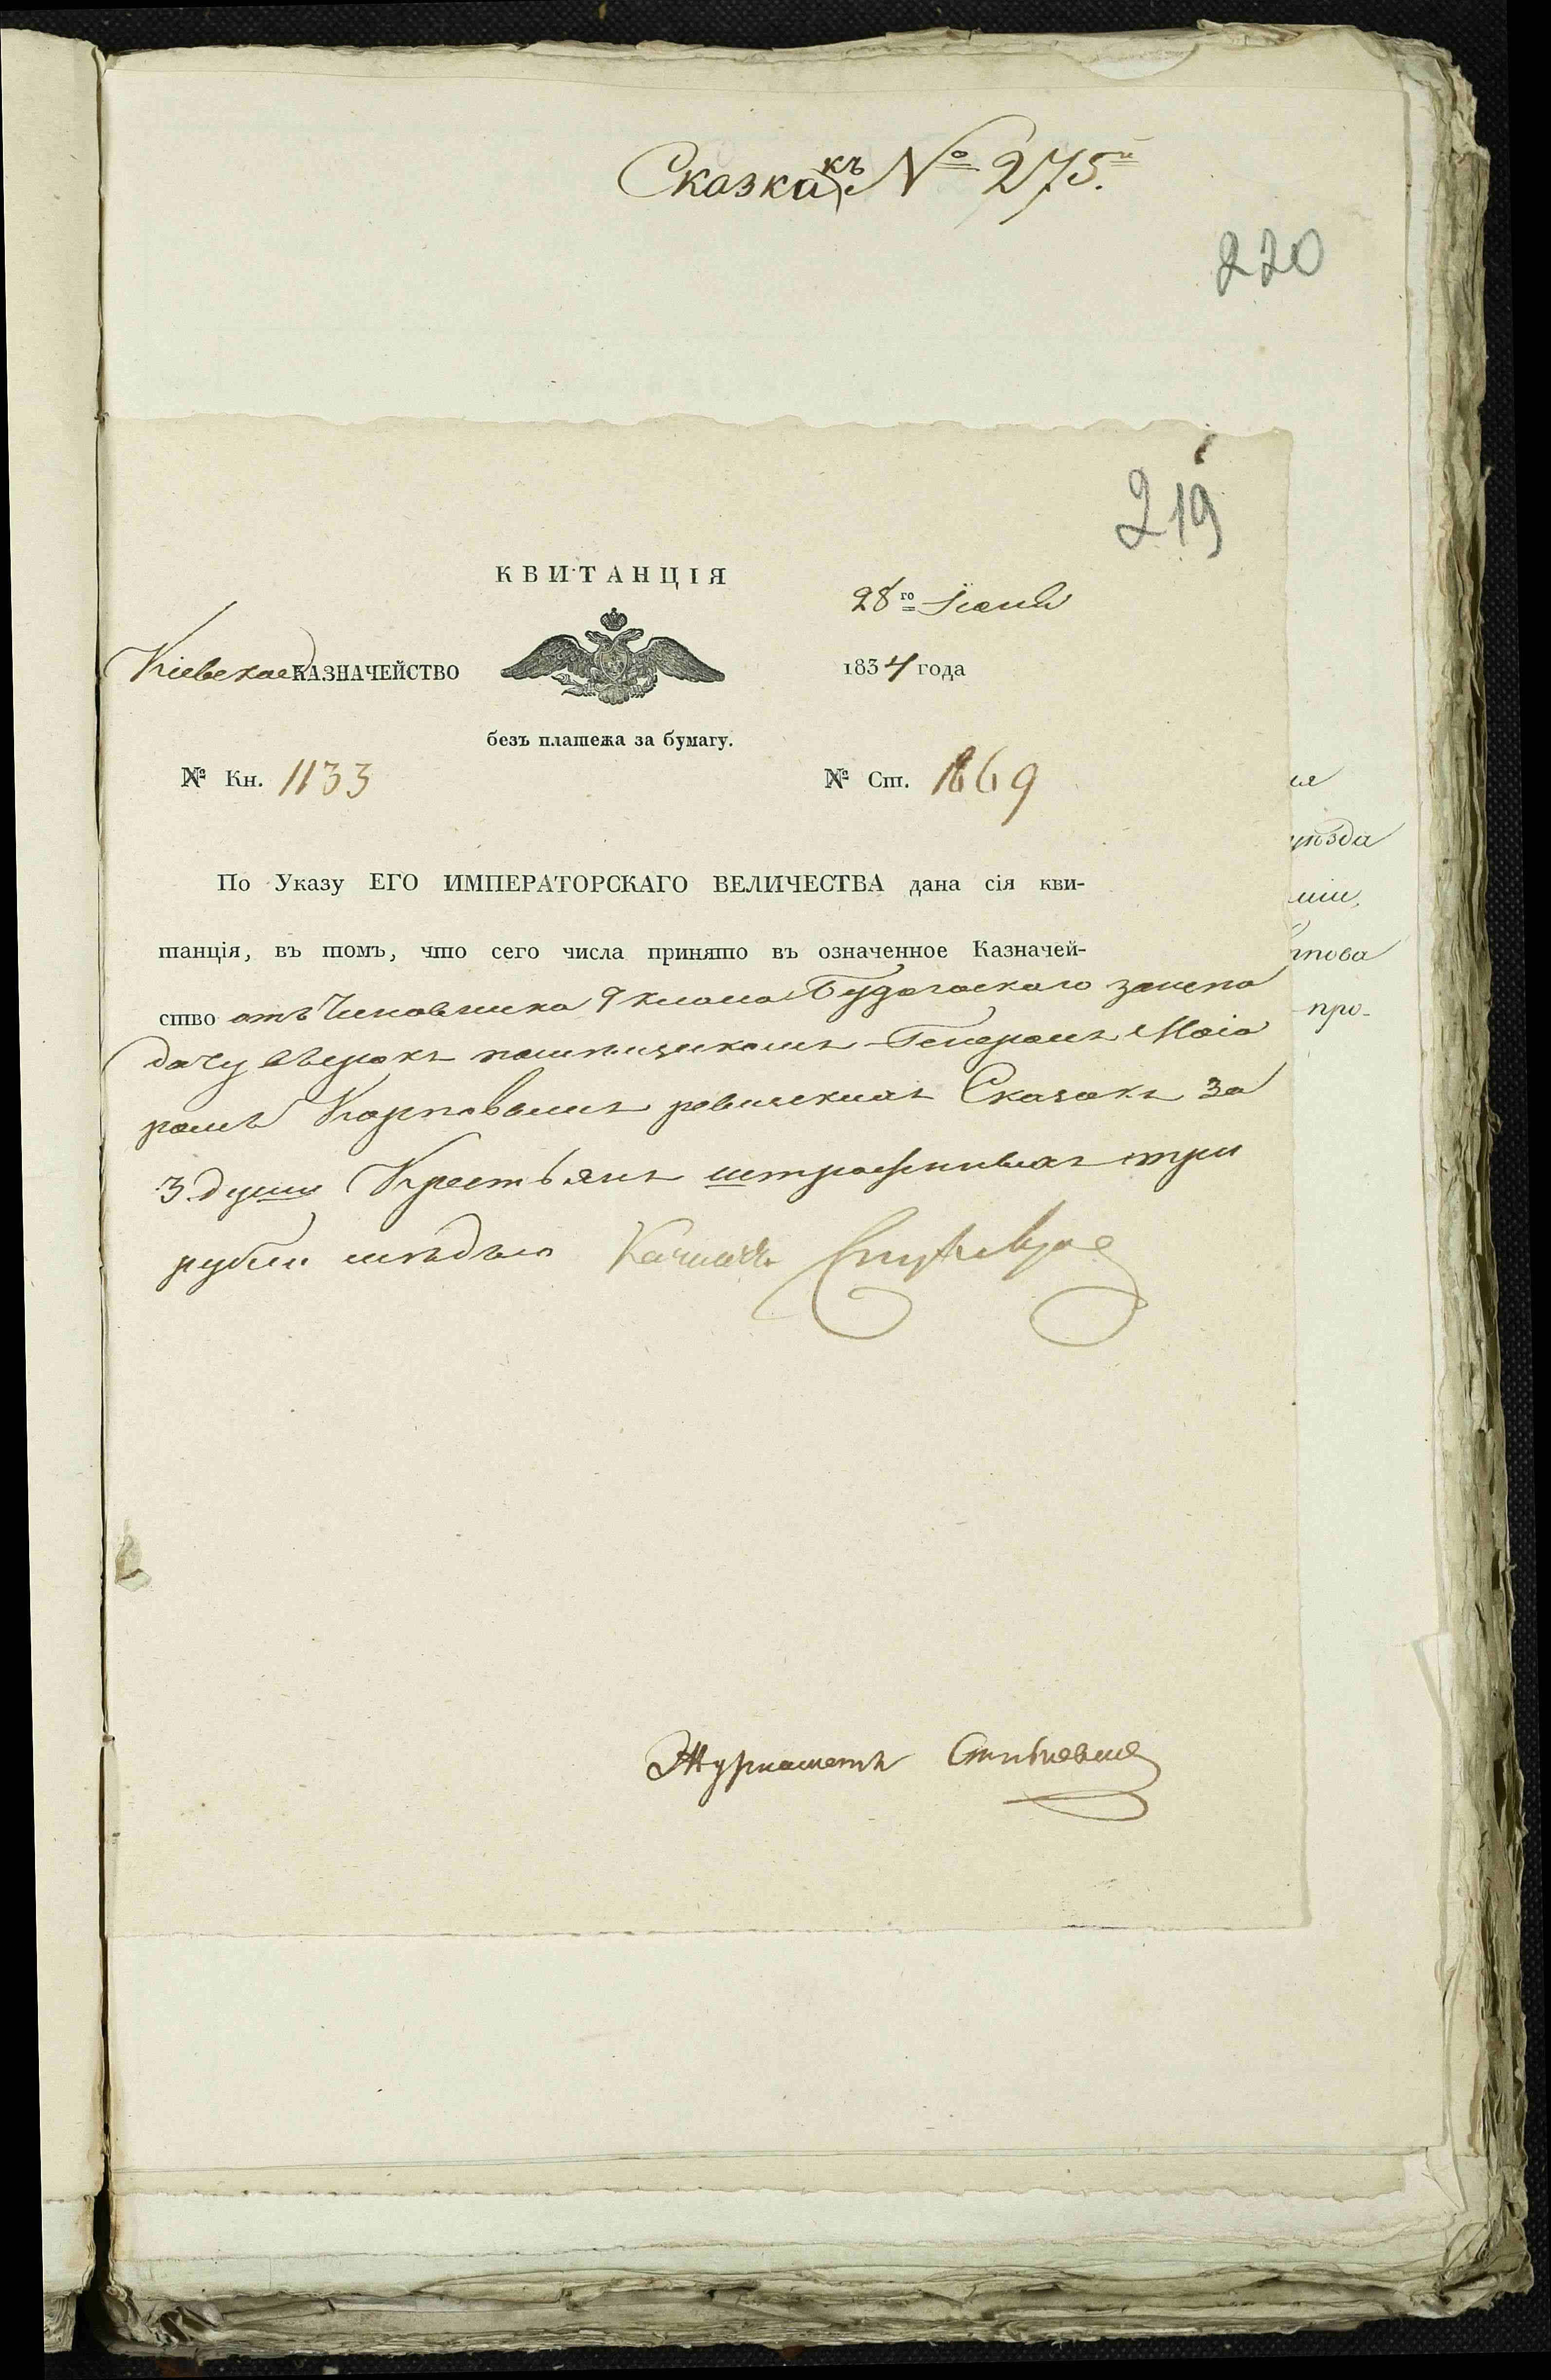 Сказка къ № 275.й
220
219
КВИТАНЦІЯ
28го Іюня
Кіевское КАЗНАЧЕЙСТВО
1834 года
безъ платежа за бумагу.
№ Кн. 1133
№ Ст. 1869
По Указу ЕГО ИМПЕРАТОРСКАГО ВЕЛИЧЕСТВА дана сія кви-
танція, въ томъ, что сего числа принято въ означенное Казначей-
ство отъ Чиновника 9 класа Будаговскаго за непо
дачу въ срокъ помѣщикомъ Генералъ Маіо
ромъ Карповымъ ревизскихъ Сказокъ за
3 души Крестьянъ штрафныхъ три
рубли мѣдью
Журналистъ
уѣзда
про-